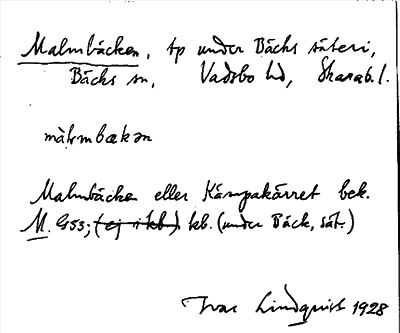 Malmbäcken, tp under Bäcks säteri,
Bäcks sn, Vadsbo hd, Skarab. l.
màlmbækən
Malmbäcken eller Kämpakärret bek.
M. G53; (ej i kb.) kb. (under Bäck, sät.)
Ivar Lindquist 1928